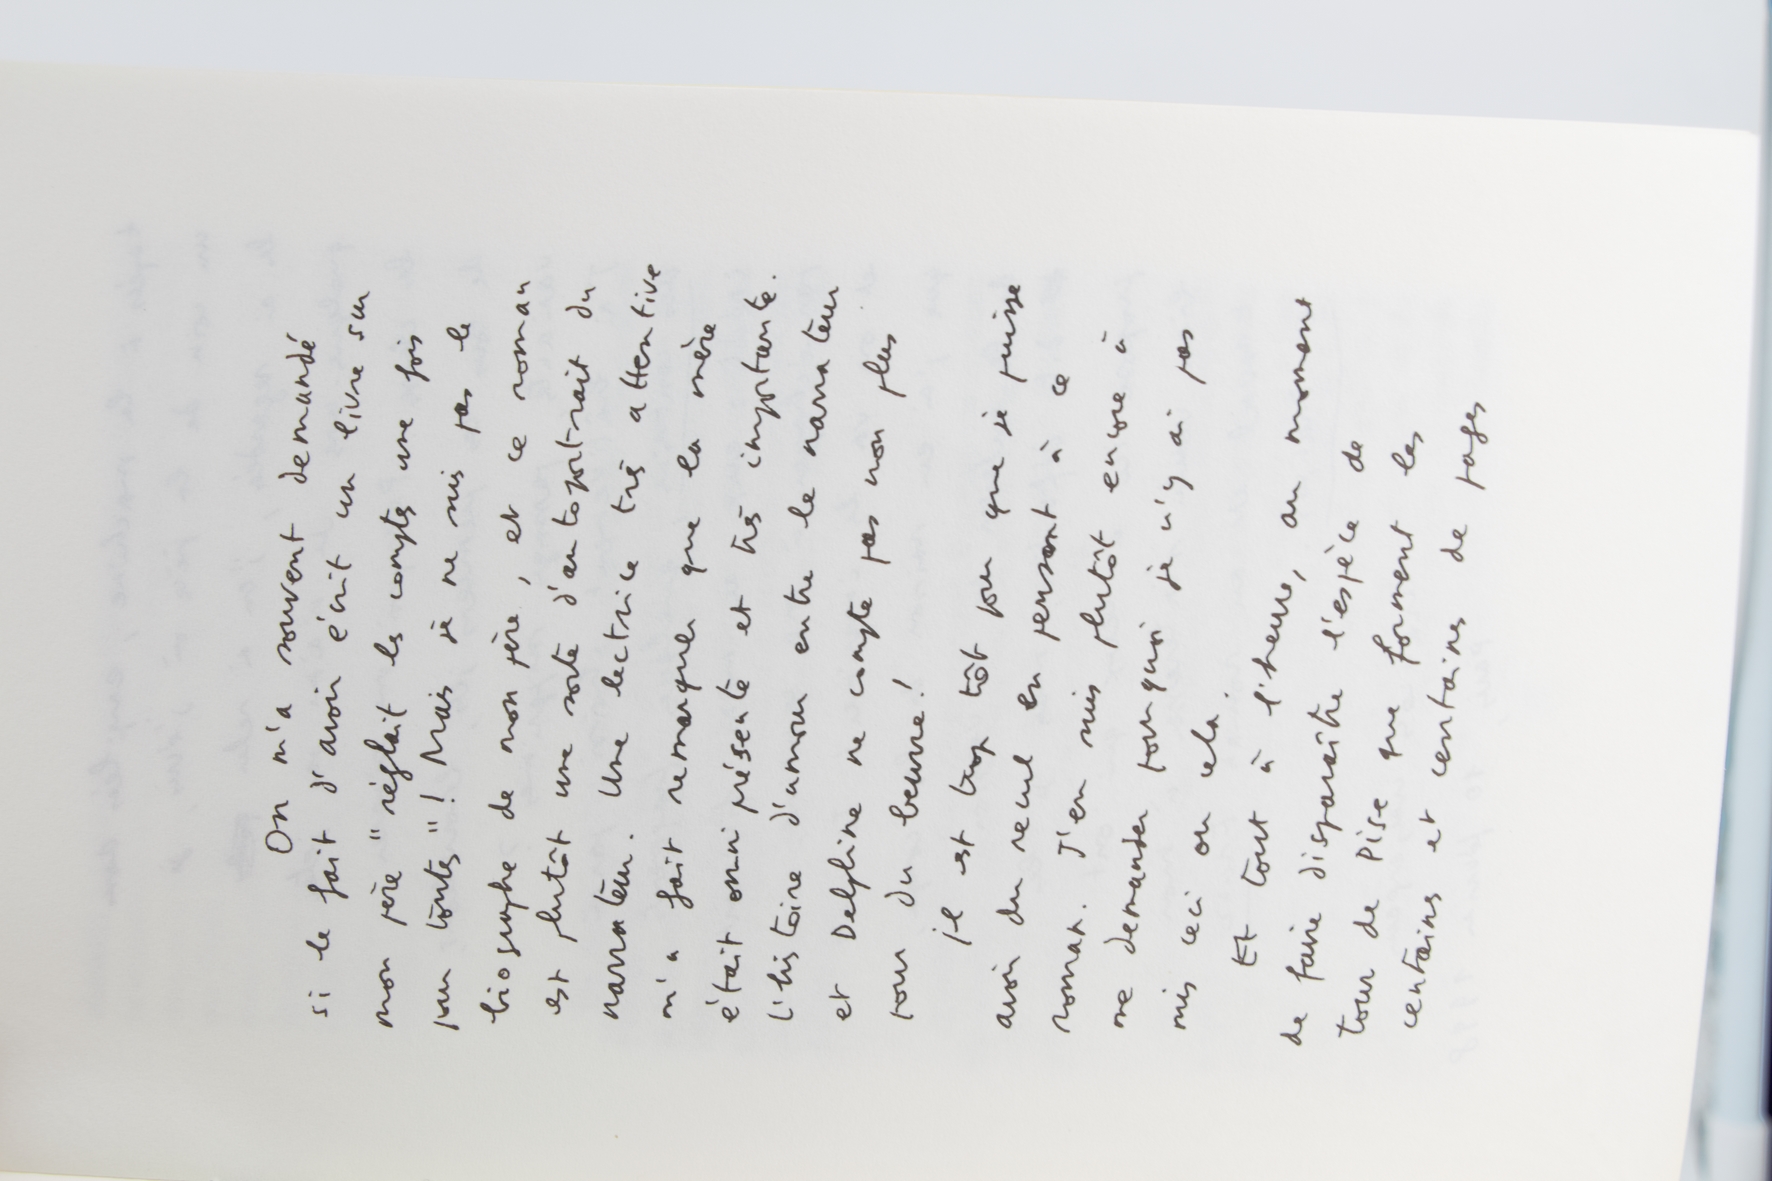 On m'a souvent demandé
si le fait d'avoir écrit un livre sur
mon père "réglait les comptes une fois
pour toutes"! Mais je ne suis pas le
biographe de mon père, et ce roman
est plutôt une sorte d'autoportrait du
narrateur. Une lectrice très attentive
m'a fait remarquer que la mère
était omniprésente et très importante.
L'histoire d'amour entre le narrateur
et Delphine ne compte pas non plus
pour du beurre!
Il est trop tôt pour que je puisse
avoir du recul en pensant à ce
roman. J'en suis plutôt encore à
me demander pourquoi je n'y ai pas
mis ceci ou cela.
Et tout à l'heure, au moment
de faire disparaître l'espèce de
tour de Pise que forment les
centaines et centaines de pages